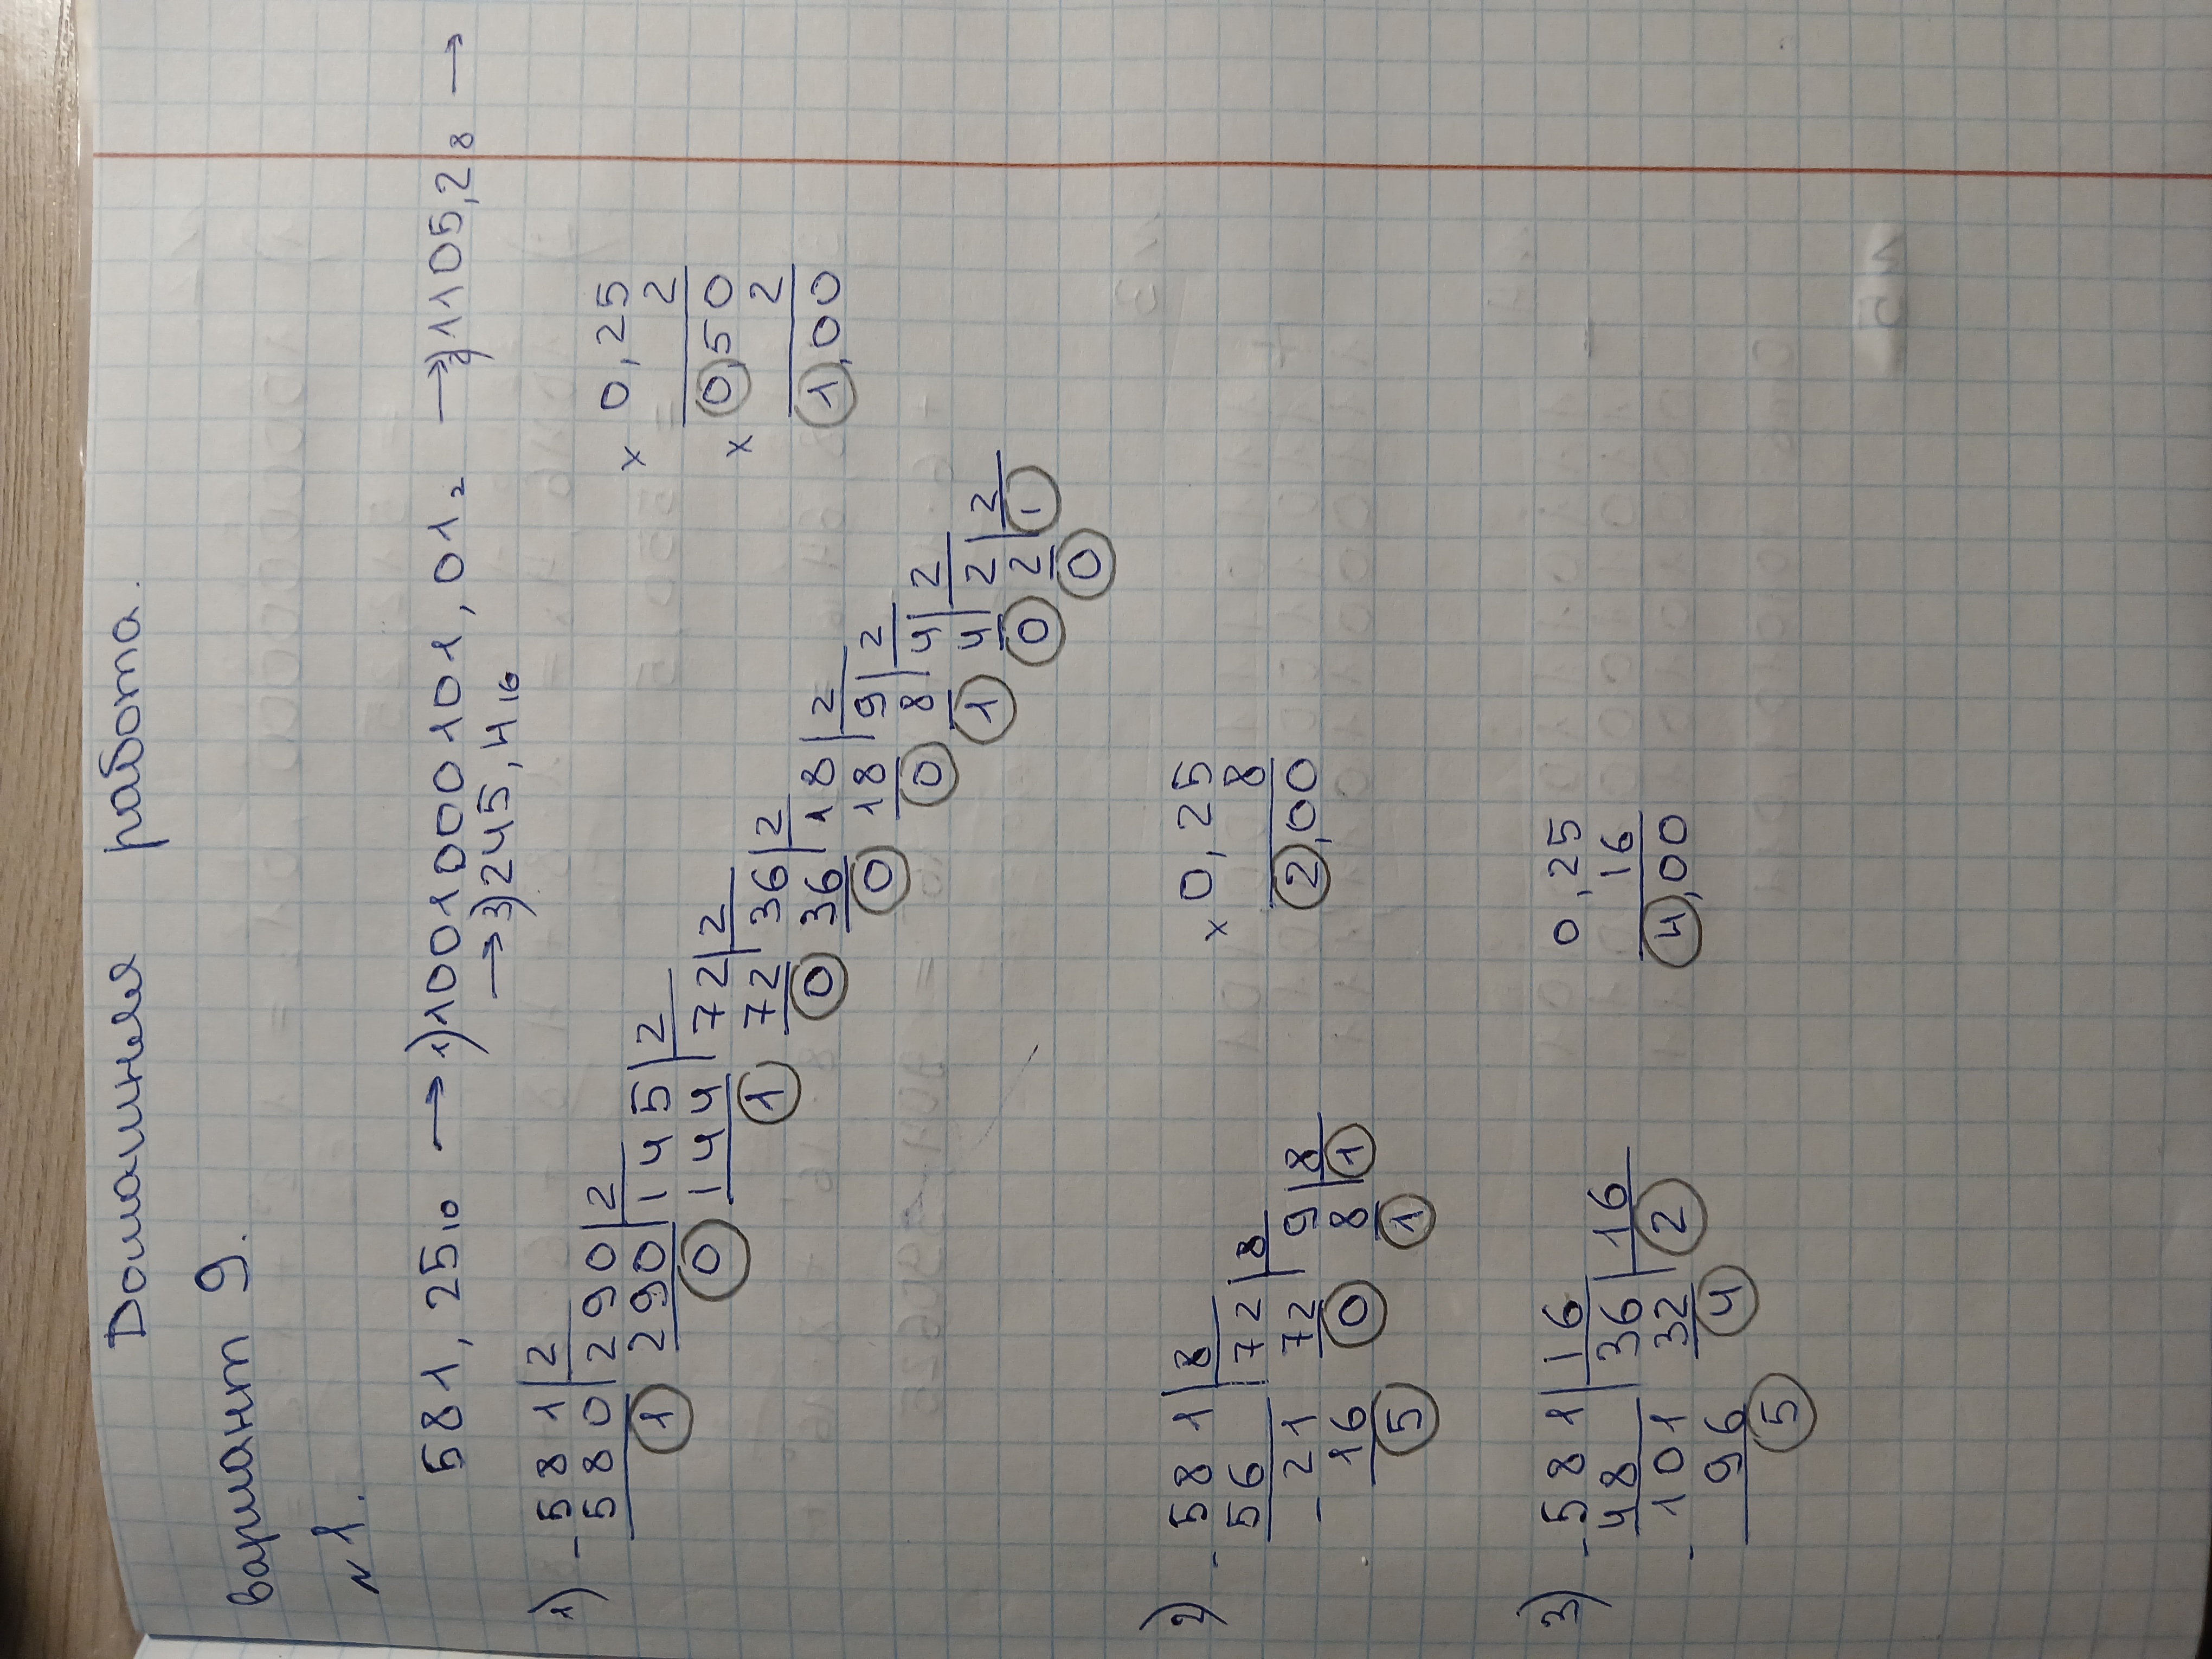 Домашняя работа.
вариант 9.
№1.
581,25₁₀ → 1) 1001000101,01₂ → 2) 1105,2₈ →
→ 3) 245,4₁₆
1) - 581 | 2
580 | 290 | 2
1 290 | 145 | 2
0 144 | 72 | 2
1 72 | 36 | 2
0 36 | 18 | 2
0 18 | 9 | 2
0 8 | 4 | 2
1 4 | 2 | 2
0 2 | 1
0
× 0,25
2
× 0,50
2
1,00
2) - 581 | 8
56 | 72 | 8
- 21 72 | 9 | 8
16 0 8 | 1
5 1
× 0,25
8
2,00
3) - 581 | 16
48 | 36 | 16
- 101 32 | 2
96 4
5
0,25
16
4,00